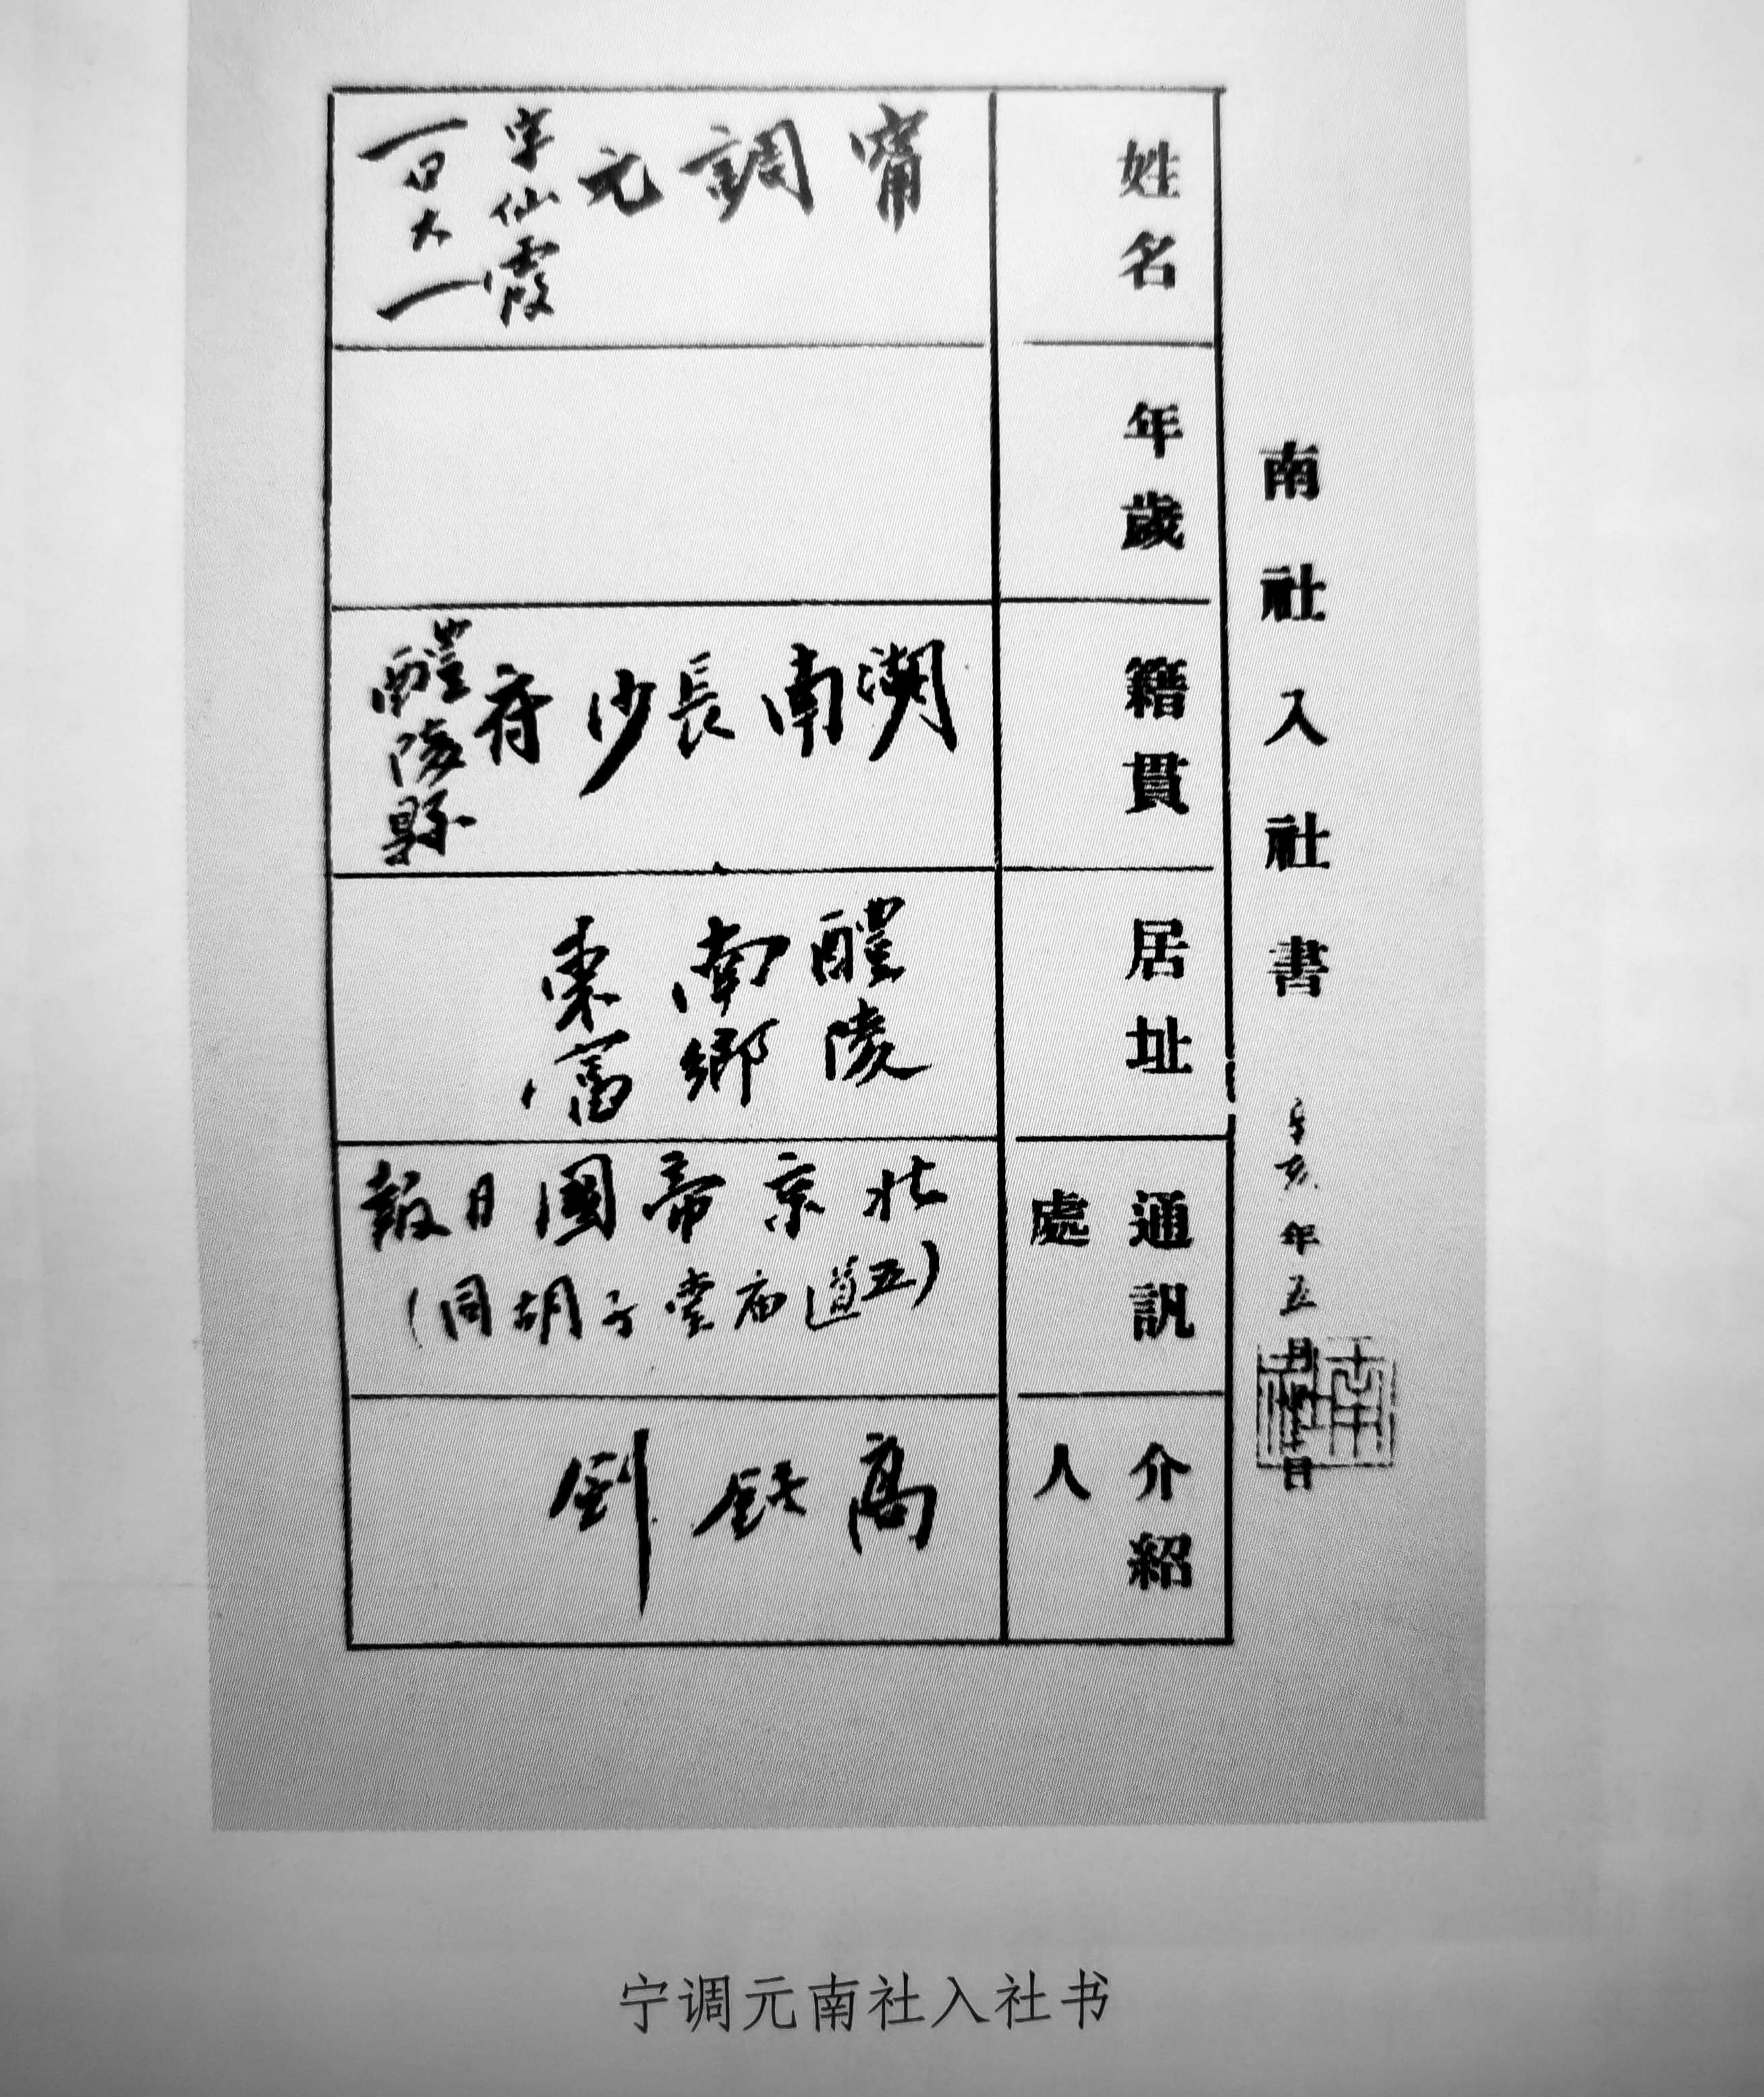 南社入社書 辛亥年五月日
南社
姓名
甯調元
字仙霞
一曰大一
年歲
籍貫
湖南長沙府
醴陵縣
居址
醴陵
南鄉
東富
通訊
處
北京帝國日報
(五道庙堂子胡同)
介紹
人
高鈍劍
宁调元南社入社书